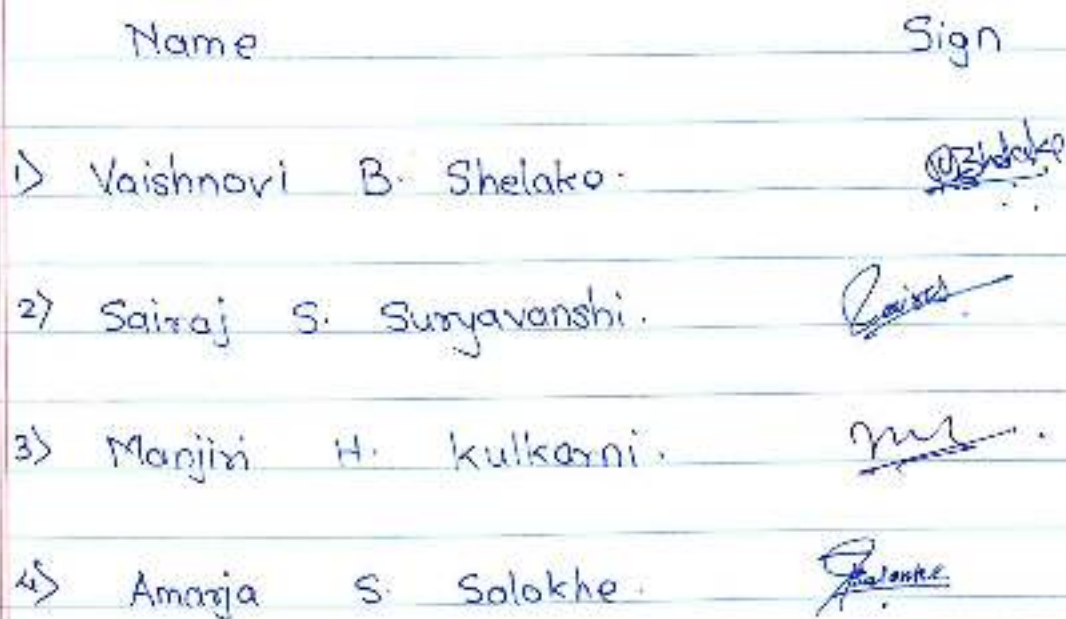 Name Sign
1) Vaishnavi B. Shelake.
2) Sairaj S. Suryavanshi. Sairaj
3) Manjiri H. Kulkarni.
4) Amarja S. Salokhe.